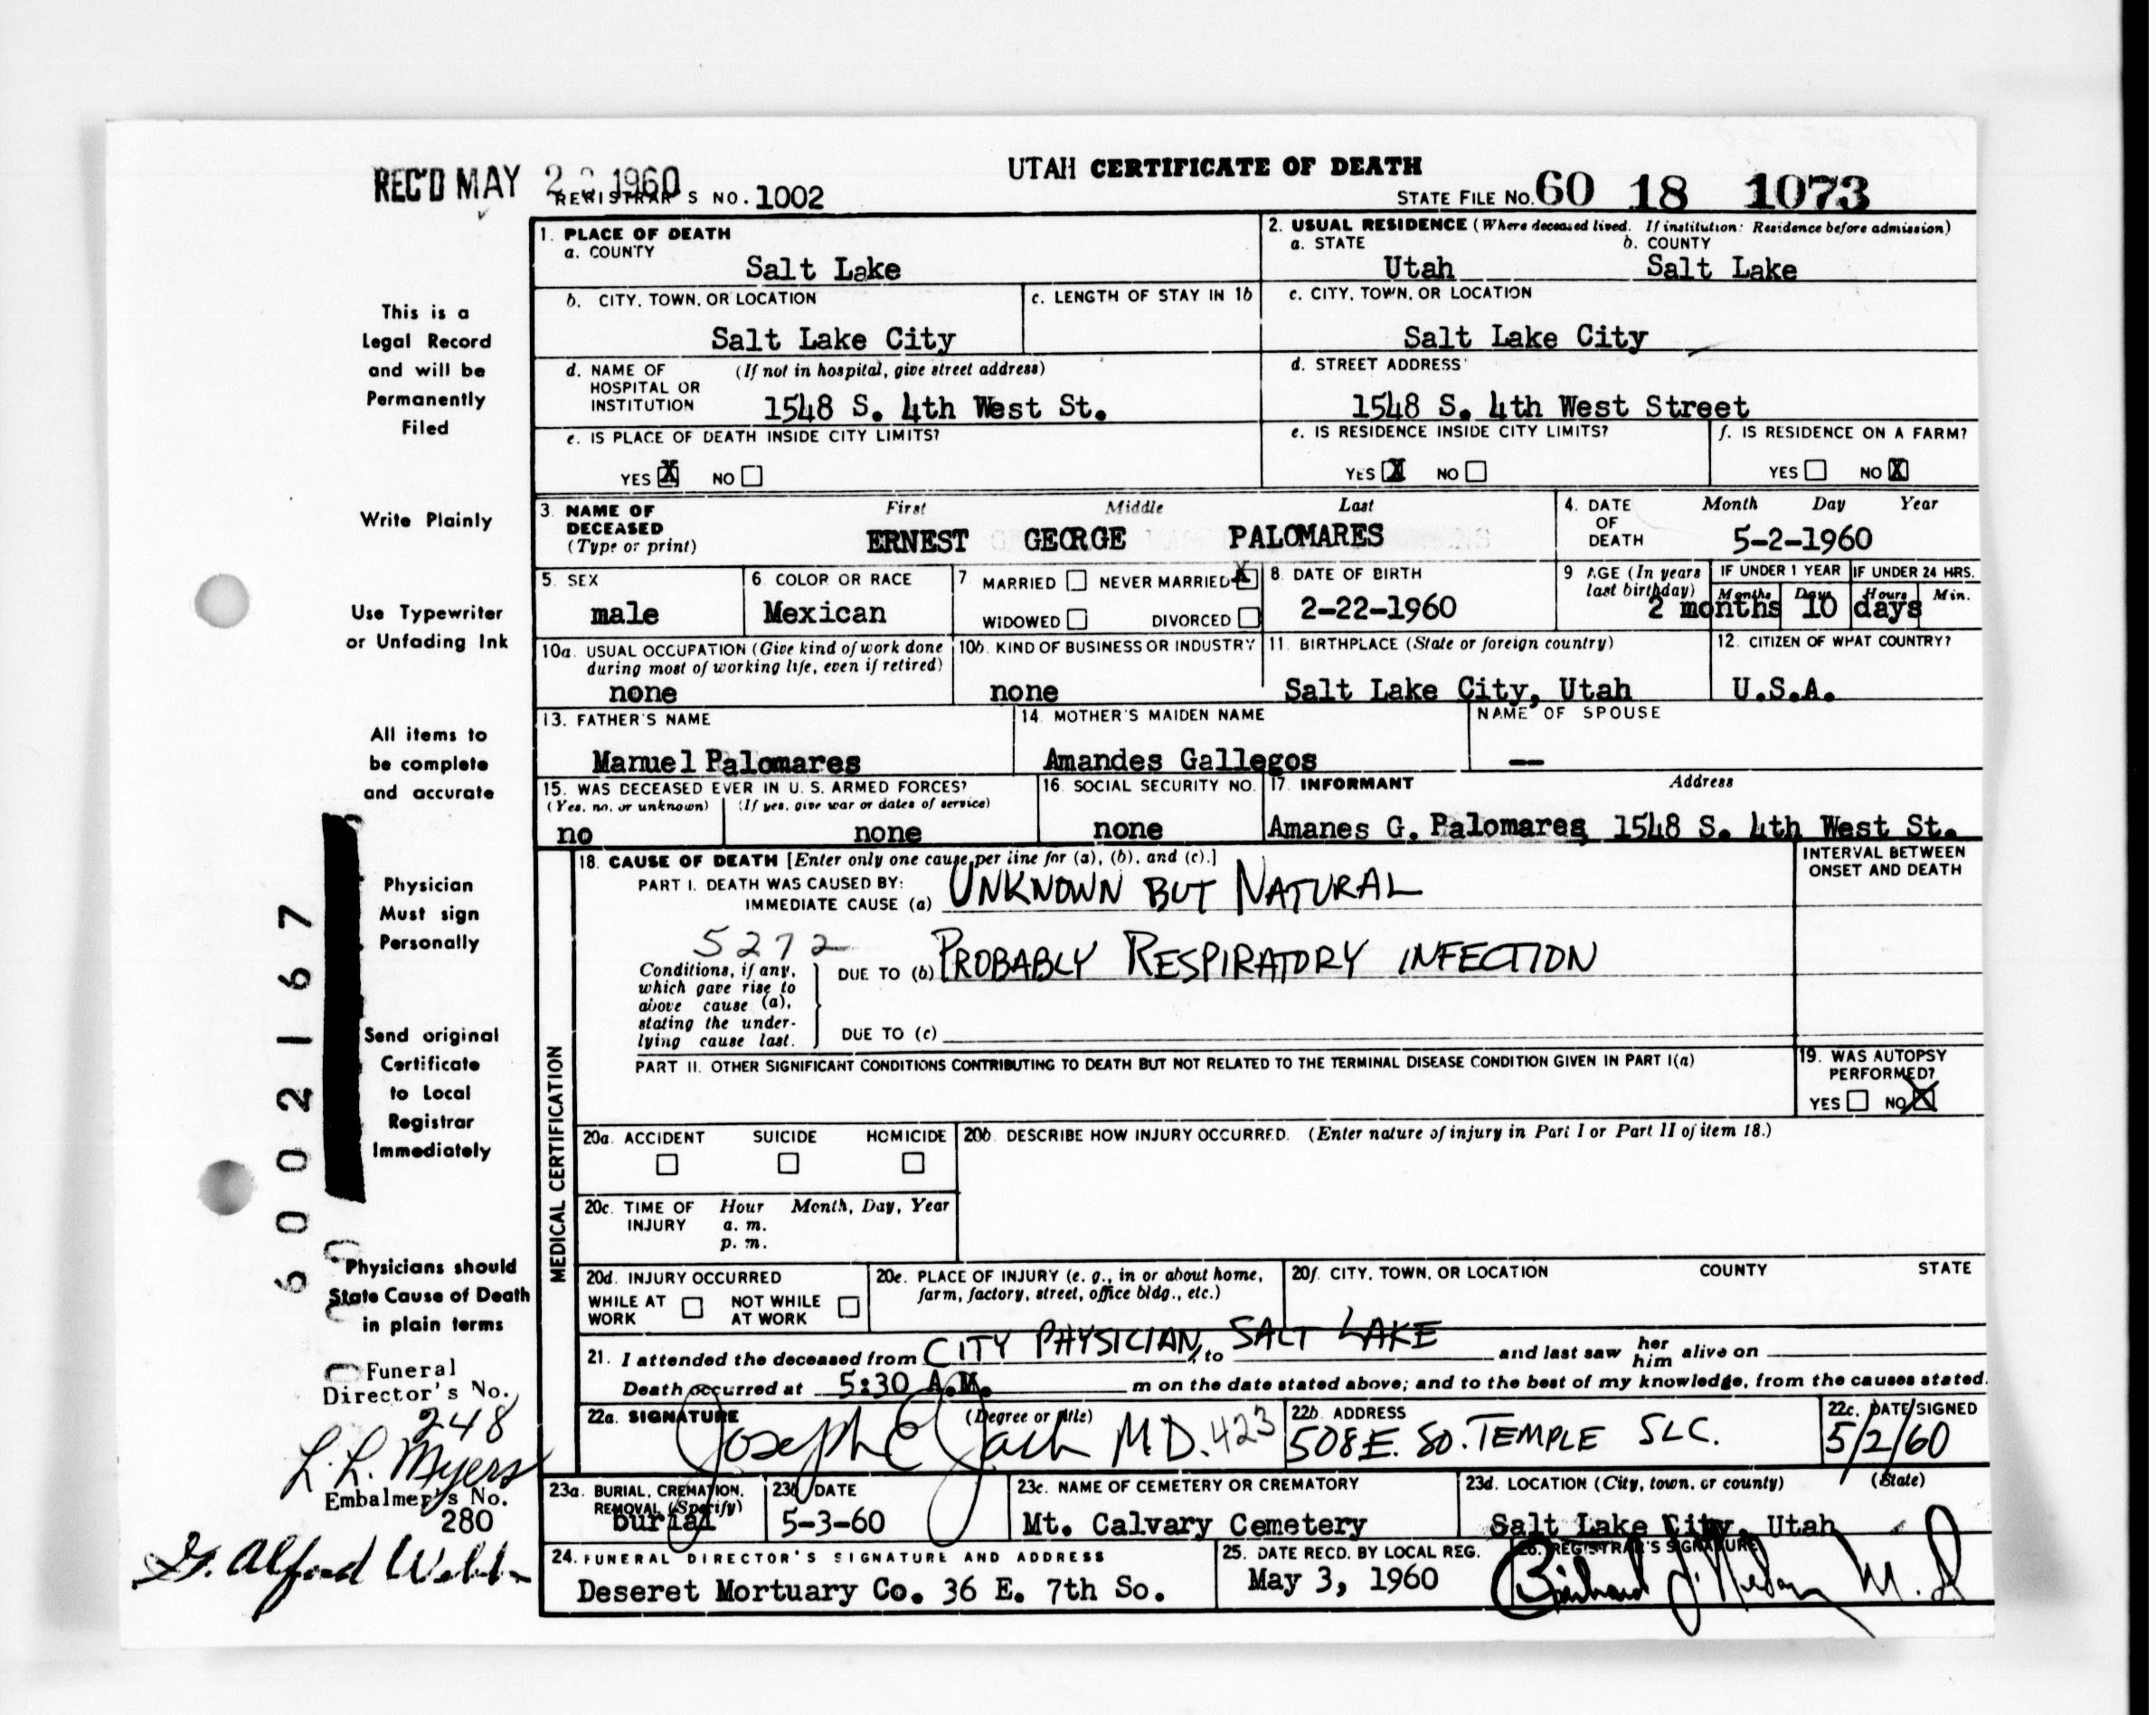 UTAH CERTIFICATE OF DEATH
REC'D MAY 1960
REGISTRAR'S NO. 1002
STATE FILE NO. 60 18 1073
1. PLACE OF DEATH
a. COUNTY
Salt Lake
2. USUAL RESIDENCE (Where deceased lived. If institution: Residence before admission)
a. STATE b. COUNTY
Utah Salt Lake
b. CITY, TOWN, OR LOCATION
Salt Lake City
c. LENGTH OF STAY IN 1b
c. CITY, TOWN, OR LOCATION
Salt Lake City
d. NAME OF HOSPITAL OR INSTITUTION (If not in hospital, give street address)
1548 S. 4th West St.
d. STREET ADDRESS
1548 S. 4th West Street
e. IS PLACE OF DEATH INSIDE CITY LIMITS?
YES X NO
e. IS RESIDENCE INSIDE CITY LIMITS?
YES X NO
f. IS RESIDENCE ON A FARM?
YES NO X
3. NAME OF DECEASED (Type or print)
First Middle Last
ERNEST GEORGE PALOMARES
4. DATE OF DEATH Month Day Year
5-2-1960
5. SEX
male
6 COLOR OR RACE
Mexican
7 MARRIED NEVER MARRIED X
WIDOWED DIVORCED
8. DATE OF BIRTH
2-22-1960
9 AGE (In years last birthday)
IF UNDER 1 YEAR IF UNDER 24 HRS.
Months Days Hours Min.
2 months 10 days
10a. USUAL OCCUPATION (Give kind of work done during most of working life, even if retired)
none
10b. KIND OF BUSINESS OR INDUSTRY
none
11. BIRTHPLACE (State or foreign country)
Salt Lake City, Utah
12. CITIZEN OF WHAT COUNTRY?
U.S.A.
13. FATHER'S NAME
Manuel Palomares
14. MOTHER'S MAIDEN NAME
Amandes Gallegos
NAME OF SPOUSE
—
15. WAS DECEASED EVER IN U. S. ARMED FORCES?
(Yes, no, or unknown) (If yes, give war or dates of service)
no none
16. SOCIAL SECURITY NO.
none
17. INFORMANT Address
Amanes G. Palomares 1548 S. 4th West St.
18. CAUSE OF DEATH [Enter only one cause per line for (a), (b), and (c).]
INTERVAL BETWEEN ONSET AND DEATH
PART I. DEATH WAS CAUSED BY:
IMMEDIATE CAUSE (a) UNKNOWN BUT NATURAL
5272
Conditions, if any, which gave rise to above cause (a), stating the underlying cause last.
DUE TO (b) PROBABLY RESPIRATORY INFECTION
DUE TO (c)
PART II. OTHER SIGNIFICANT CONDITIONS CONTRIBUTING TO DEATH BUT NOT RELATED TO THE TERMINAL DISEASE CONDITION GIVEN IN PART I(a)
19. WAS AUTOPSY PERFORMED?
YES NO X
MEDICAL CERTIFICATION
20a. ACCIDENT SUICIDE HOMICIDE
20b. DESCRIBE HOW INJURY OCCURRED. (Enter nature of injury in Part I or Part II of item 18.)
20c. TIME OF INJURY Hour Month, Day, Year
a. m.
p. m.
20d. INJURY OCCURRED
WHILE AT WORK NOT WHILE AT WORK
20e. PLACE OF INJURY (e. g., in or about home, farm, factory, street, office bldg., etc.)
20f. CITY, TOWN, OR LOCATION COUNTY STATE
21. I attended the deceased from CITY PHYSICIAN, to SALT LAKE and last saw her him alive on
Death occurred at 5:30 A.M. m on the date stated above; and to the best of my knowledge, from the causes stated.
22a. SIGNATURE (Degree or title)
Joseph E Jack MD. 423
22b. ADDRESS
508 E. SO. TEMPLE SLC.
22c. DATE SIGNED
5/2/60
23a. BURIAL, CREMATION, REMOVAL (Specify)
burial
23b. DATE
5-3-60
23c. NAME OF CEMETERY OR CREMATORY
Mt. Calvary Cemetery
23d. LOCATION (City, town, or county) (State)
Salt Lake City, Utah
24. FUNERAL DIRECTOR'S SIGNATURE AND ADDRESS
Deseret Mortuary Co. 36 E. 7th So.
25. DATE RECD. BY LOCAL REG.
May 3, 1960
26. REGISTRAR'S SIGNATURE
M.D
This is a
Legal Record
and will be
Permanently
Filed
Write Plainly
Use Typewriter
or Unfading Ink
All items to
be complete
and accurate
Physician
Must sign
Personally
Send original
Certificate
to Local
Registrar
Immediately
Physicians should
State Cause of Death
in plain terms
6002167
Funeral
Director's No.
248
L. L. Myers
Embalmer's No.
280
G. Alford Webb